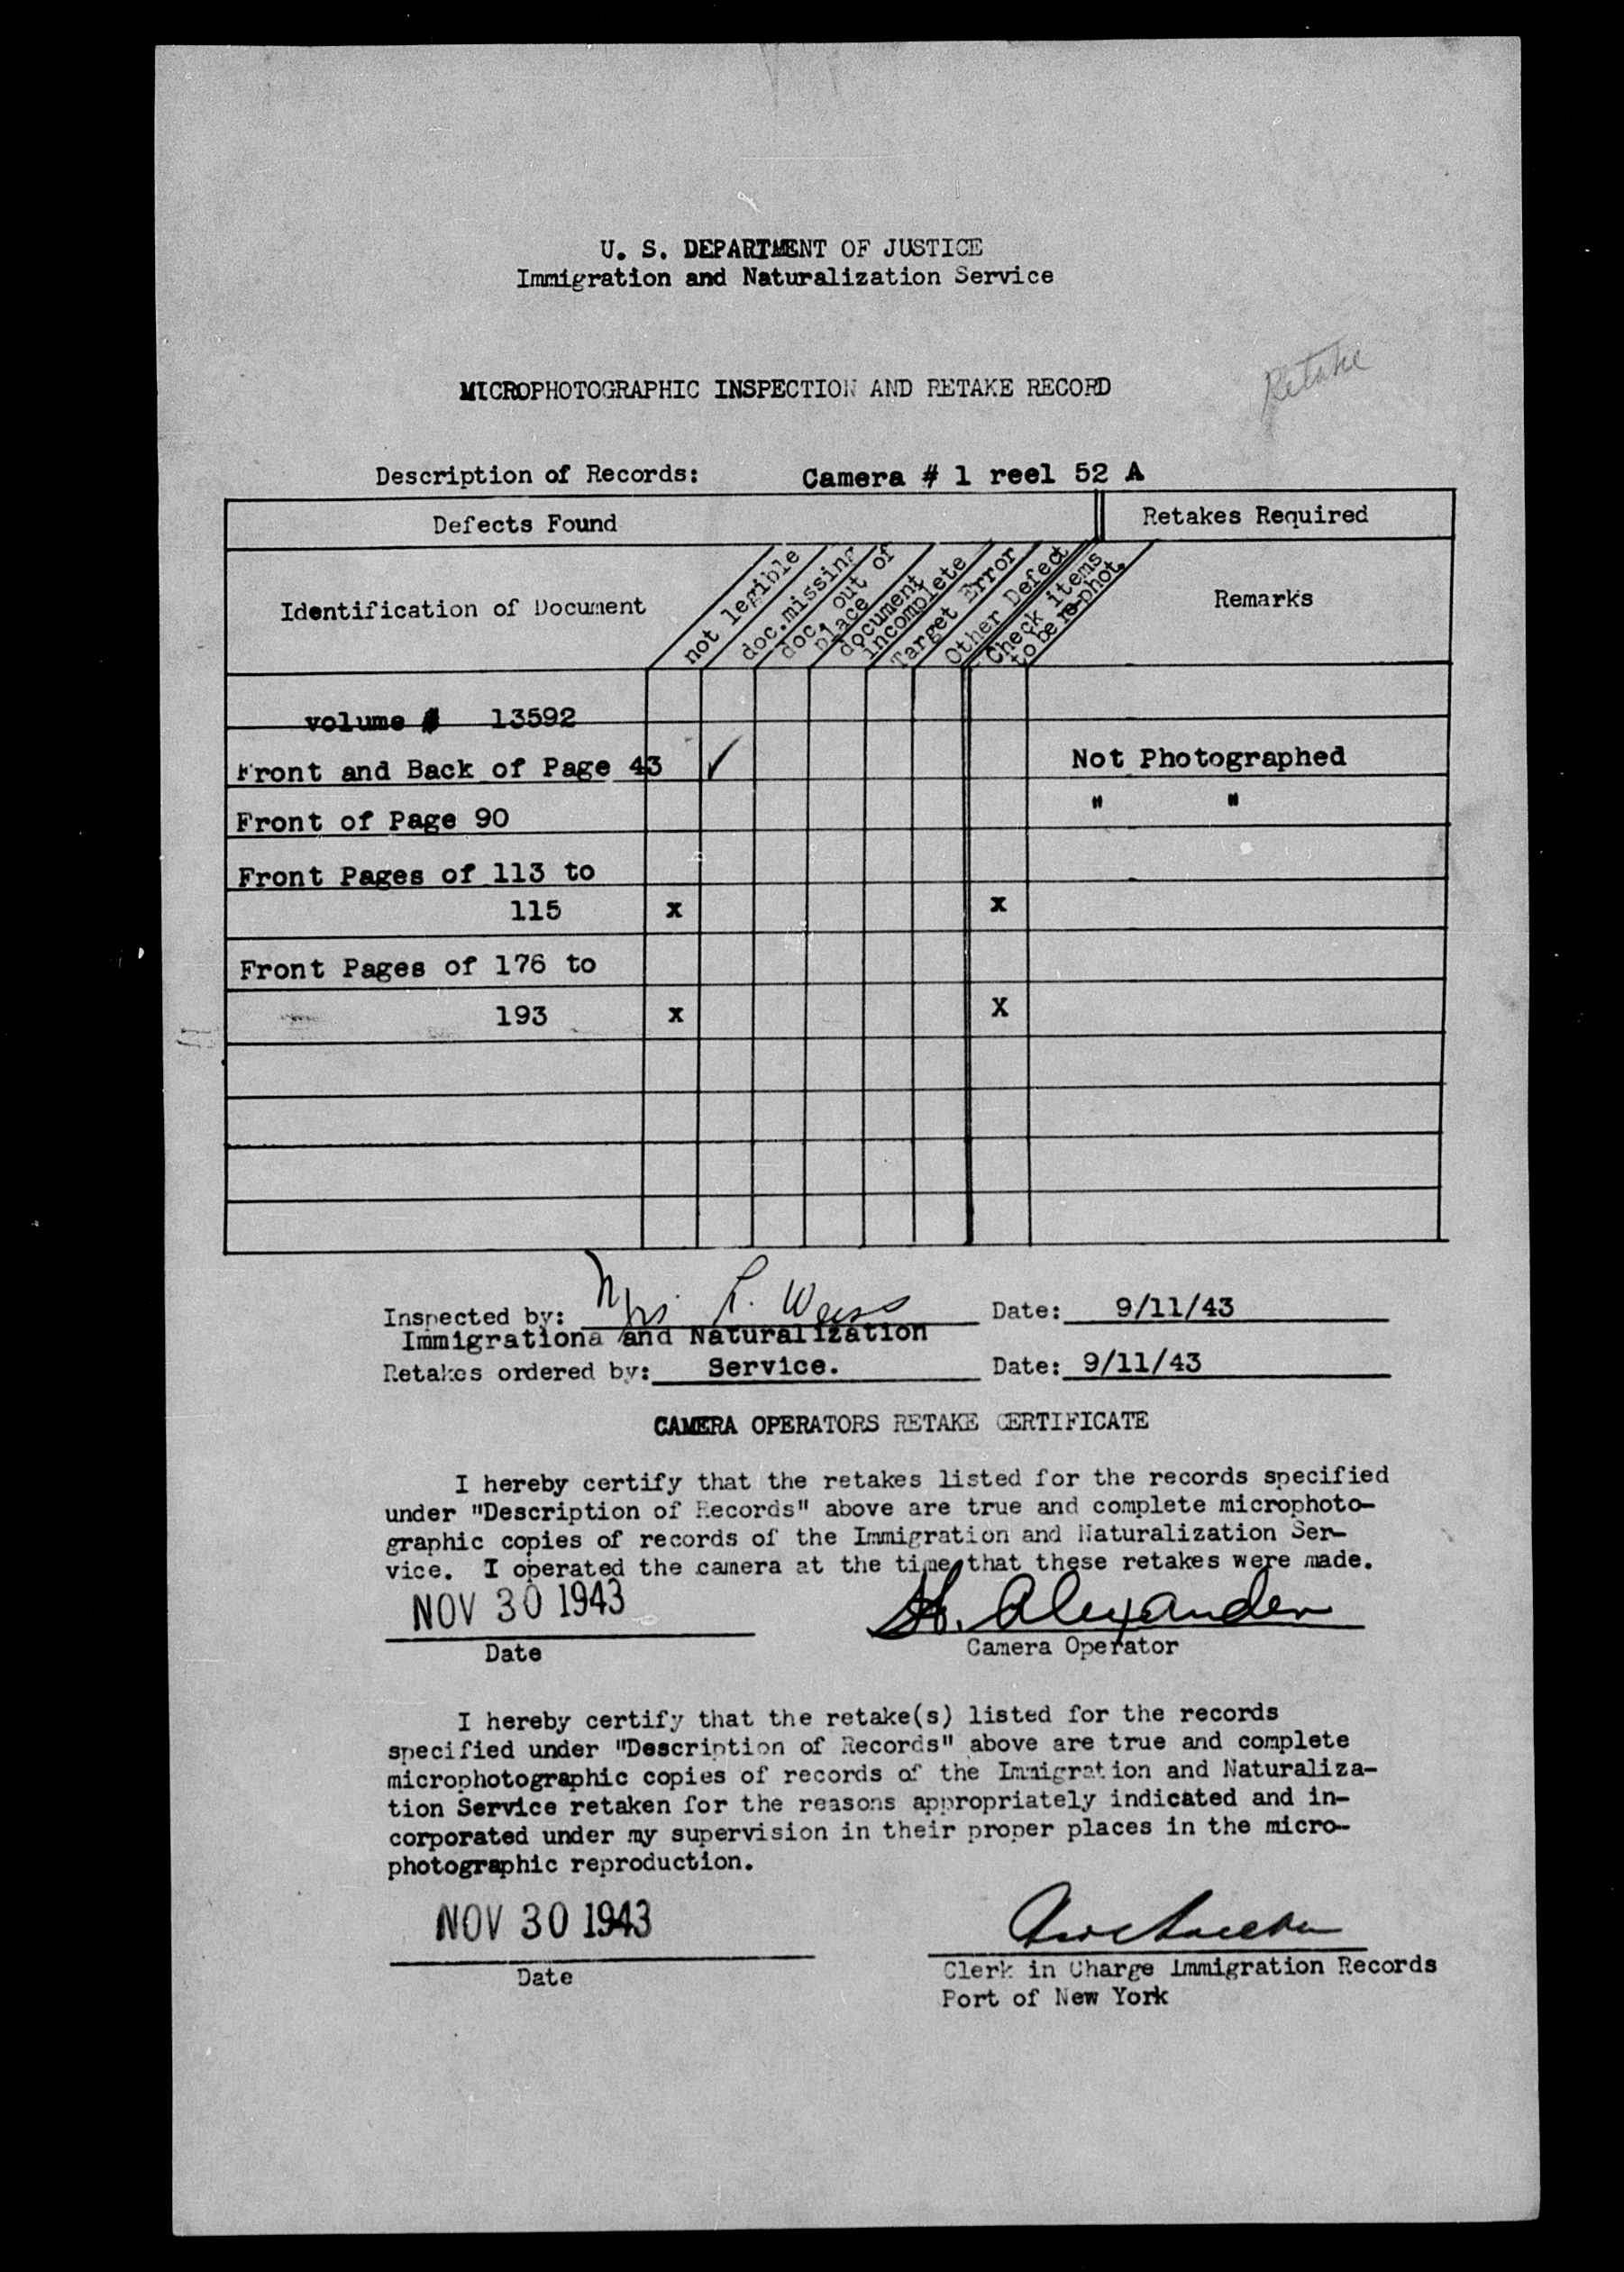 U. S. DEPARTMENT OF JUSTICE
Immigration and Naturalization Service
Retake
MICROPHOTOGRAPHIC INSPECTION AND RETAKE RECORD
Description of Records: Camera # 1 reel 52 A
Defects Found
Retakes Required
Identification of Document
not legible
doc. missing
doc. out of
place
document
incomplete
Target Error
Other Defect
Check items
to be re-phot.
Remarks
volume # 13592
Front and Back of Page 43 ✓ Not Photographed
Front of Page 90 " "
Front Pages of 113 to
115 x x
Front Pages of 176 to
193 x X
Inspected by: Mrs. R. Weiss Date: 9/11/43
Immigrationa and Naturalization
Retakes ordered by: Service. Date: 9/11/43
CAMERA OPERATORS RETAKE CERTIFICATE
I hereby certify that the retakes listed for the records specified
under "Description of Records" above are true and complete microphoto-
graphic copies of records of the Immigration and Naturalization Ser-
vice. I operated the camera at the time that these retakes were made.
NOV 30 1943 H. Alexander
Date Camera Operator
I hereby certify that the retake(s) listed for the records
specified under "Description of Records" above are true and complete
microphotographic copies of records of the Immigration and Naturaliza-
tion Service retaken for the reasons appropriately indicated and in-
corporated under my supervision in their proper places in the micro-
photographic reproduction.
NOV 30 1943
Date
Clerk in Charge Immigration Records
Port of New York